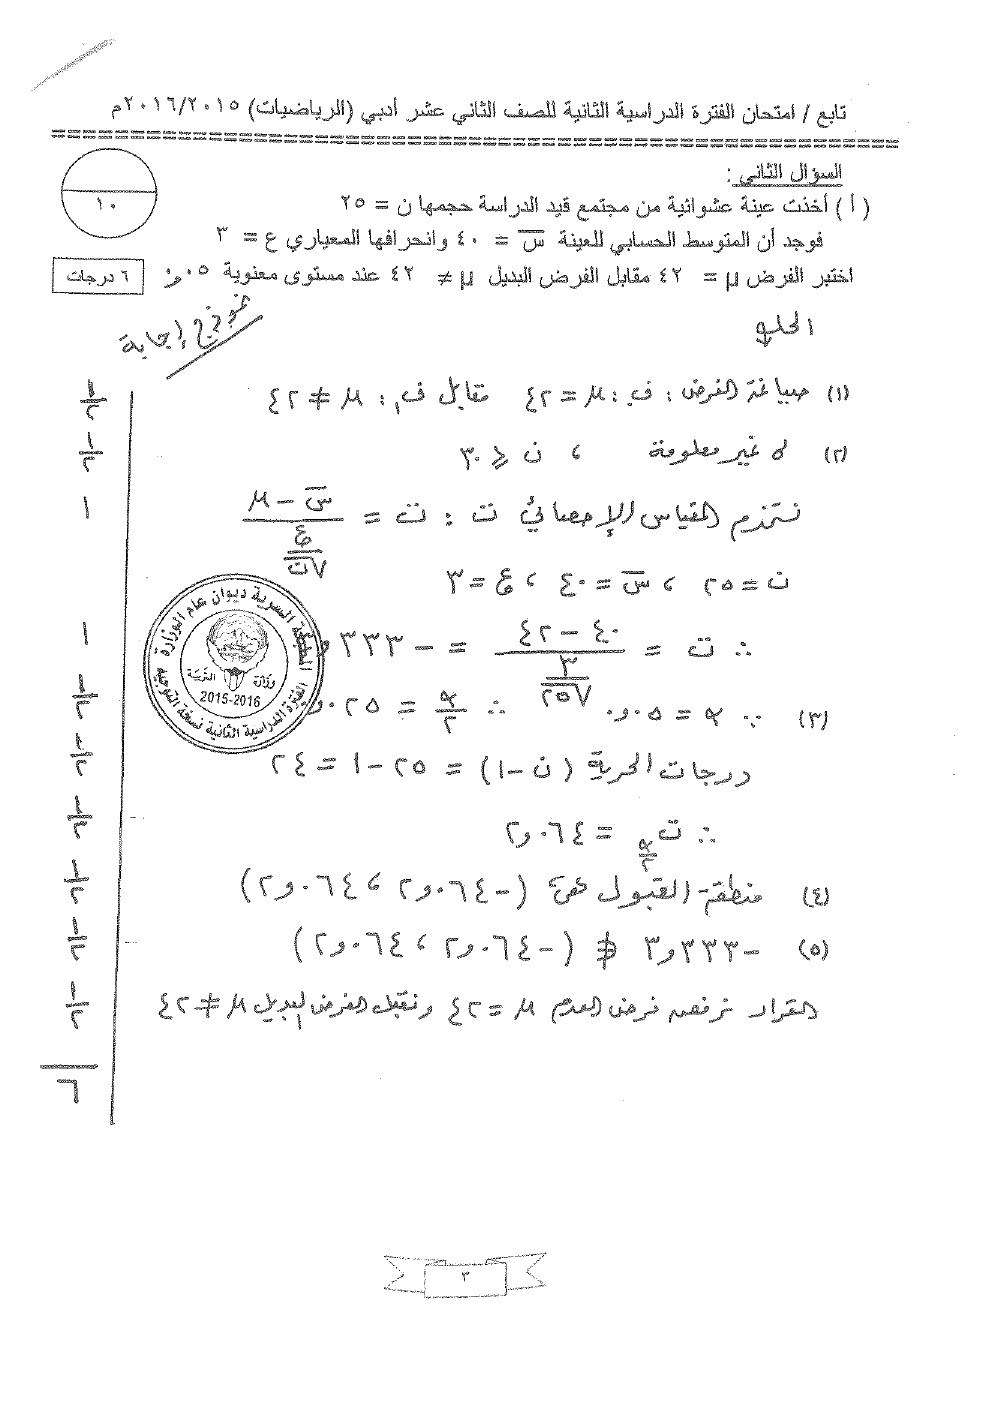 تابع / امتحان الفترة الدراسية الثانية للصف الثاني عشر أدبي (الرياضيات) ٢٠١٦/٢٠١٥م
السؤال الثاني :
١٠
( أ ) أخذت عينة عشوائية من مجتمع قيد الدراسة حجمها ن = ٢٥
فوجد أن المتوسط الحسابي للعينة س̅ = ٤٠ وانحرافها المعياري ع = ٣
اختبر الفرض μ = ٤٢ مقابل الفرض البديل μ ≠ ٤٢ عند مستوى معنوية ٠,٠٥
٦ درجات
الحل
نموذج إجابة
(١) صياغة الفرض : ف. : μ = ٤٢ مقابل ف١ : μ ≠ ٤٢
١/٢
(٢) σ غير معلومة ، ن ≤ ٣٠
١/٢
نستخدم المقياس الإحصائي ت : ت = (س̅ − μ) / (ع/√ن)
١
ن = ٢٥ ، س̅ = ٤٠ ، ع = ٣
∴ ت = (٤٠ − ٤٢) / (٣/√٢٥) = − ٣,٣٣٣
١
(٣) ∵ α = ٠,٠٥ ∴ α/٢ = ٠,٠٢٥
١/٢
درجات الحرية (ن − ١) = ٢٥ − ١ = ٢٤
١/٢
∴ ت α/٢ = ٢,٠٦٤
١/٢
(٤) منطقة القبول هي (− ٢,٠٦٤ ، ٢,٠٦٤)
١/٢
(٥) − ٣,٣٣٣ ∉ (− ٢,٠٦٤ ، ٢,٠٦٤)
١/٢
القرار نرفض فرض العدم μ = ٤٢ ونقبل الفرض البديل μ ≠ ٤٢
١/٢
٦
المطبعة السرية ديوان عام الوزارة
وزارة التربية
2015-2016
الفترة الدراسية الثانية نسخة التوجيه
٣